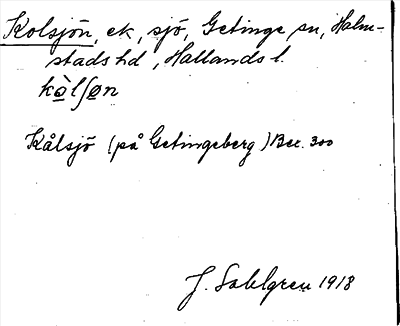 Kolsjön, ek, sjö, Getinge sn, Halm-
stads hd, Hallands l.
kòlʃøn
Kålsjö (på Getingeberg) Bex. 300
J. Sahlgren 1918